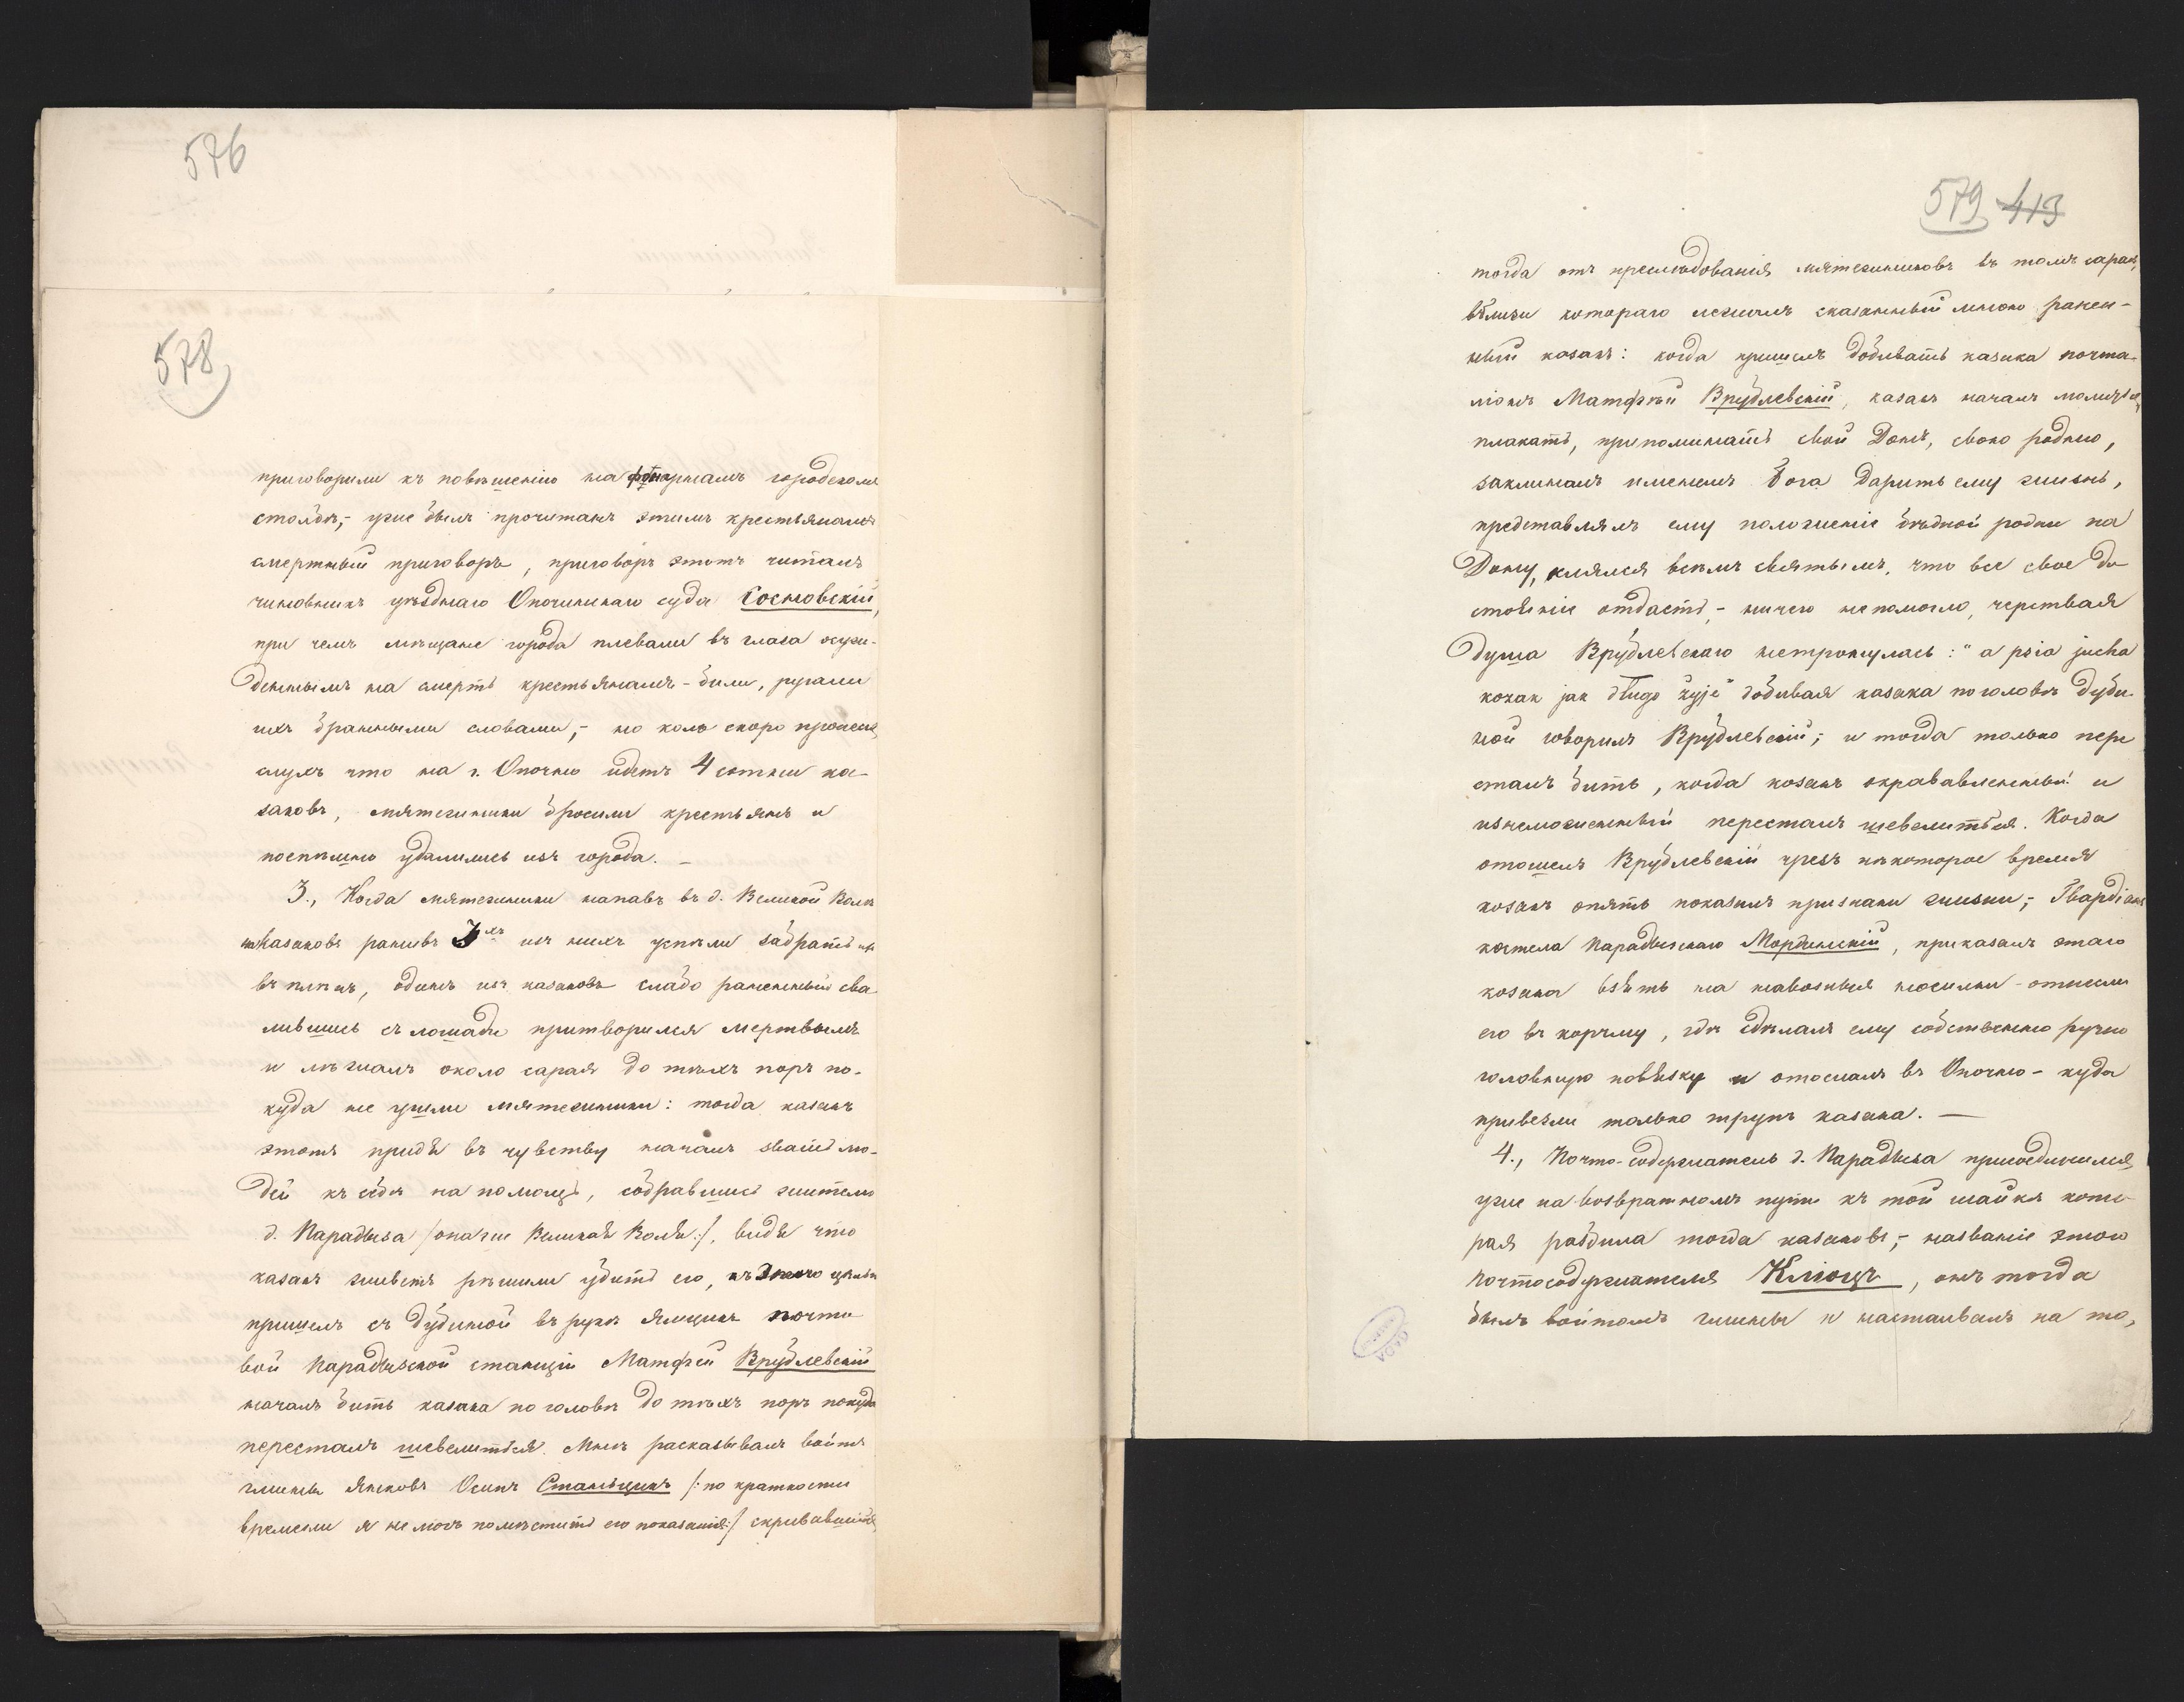 576
578
приговорили къ повѣшенію на фонарномъ городскомъ
столбѣ,- уже былъ прочитанъ этимъ крестьянамъ
смертный приговоръ, приговоръ этотъ читалъ
чиновникъ уѣзднаго Опочинскаго суда Сосновскій,
при чемъ мѣщане города плевали въ глаза осуж-
деннымъ на смерть крестьянамъ - били, ругали
ихъ бранными словами,- но коль скоро пронеслся
слухъ что на г. Опочно идетъ 4 сотни ка-
заковъ, мятежники бросили крестьянъ и
поспѣшно удалились изъ города. —
3., Когда мятежники напавъ въ д. Великой Воли
на Казаковъ ранивъ 3хъ изъ нихъ успѣли забрать ихъ
въ плѣнъ, одинъ изъ казаковъ слабо раненный сва-
лившись съ лошади притворился мертвымъ
и лѣжалъ около сарая до тѣхъ поръ по-
куда не ушли мятежники: тогда казакъ
этотъ придя въ чувству началъ звать лю-
дей къ себѣ на помощь, собравшись жители
д. Парадыза /:она же Великая Воля:/, видя что
казакъ живетъ рѣшили убить его, къ этого цѣли
пришелъ съ дубиной въ рукѣ ямщикъ почто-
вой Парадызской станціи Матфей Врублевскій
началъ бить казака по головѣ до тѣхъ поръ покуда
пересталъ шевелиться. Мнѣ расказывалъ войтъ
гмины Янковъ Осипъ Станьщикъ /:по краткости
времени я не могъ помѣстить его показанія:/ скрывавшійся
579 413
тогда отъ преслѣдованія мятежниковъ въ томъ сараѣ,
вблизи котораго лежалъ сказанный мною ранен-
ный козакъ: когда пришелъ добивать казака почта-
ліонъ Матфѣй Врублевскій, казакъ началъ молиться,
плакать, припоминать свой Донъ, свою родню,
заклиналъ именемъ Бога дарить ему жизнь,
представлялъ ему положеніе бѣдной родни на
Дону, клялся всѣмъ святымъ, что все свое до-
стояніе отдастъ,- ничего непомогло, черствая
душа Врублевскаго нетронулась: "a psia jucha
kozak jak długo żyje" добивая казака по головѣ дуби-
ной говорилъ Врублевскій; и тогда только пере-
сталъ бить, когда козакъ окрававленный и
изнеможенный пересталъ шевелиться. Когда
отошелъ Врублевскій чрезъ нѣкоторое время
козакъ опять показалъ признаки жизни;- Гвардіанъ
костела Парадызскаго Мордзинскій, приказалъ этаго
козака взять на навозныя носилки - отнесли
его въ корчму, гдѣ сдѣлалъ ему собственно ручно
головную повязку и отослалъ въ Опочно - куда
привезли только трупъ казака. —
4., Почто-содержатель д. Парадыза присоединился
уже на возвратномъ пути къ той шайкѣ кото-
рая разбила тогда казаковъ;- названіе этого
почтосодержателя Клюцъ, онъ тогда
былъ войтомъ гмины и настаивалъ на то,
AGAD